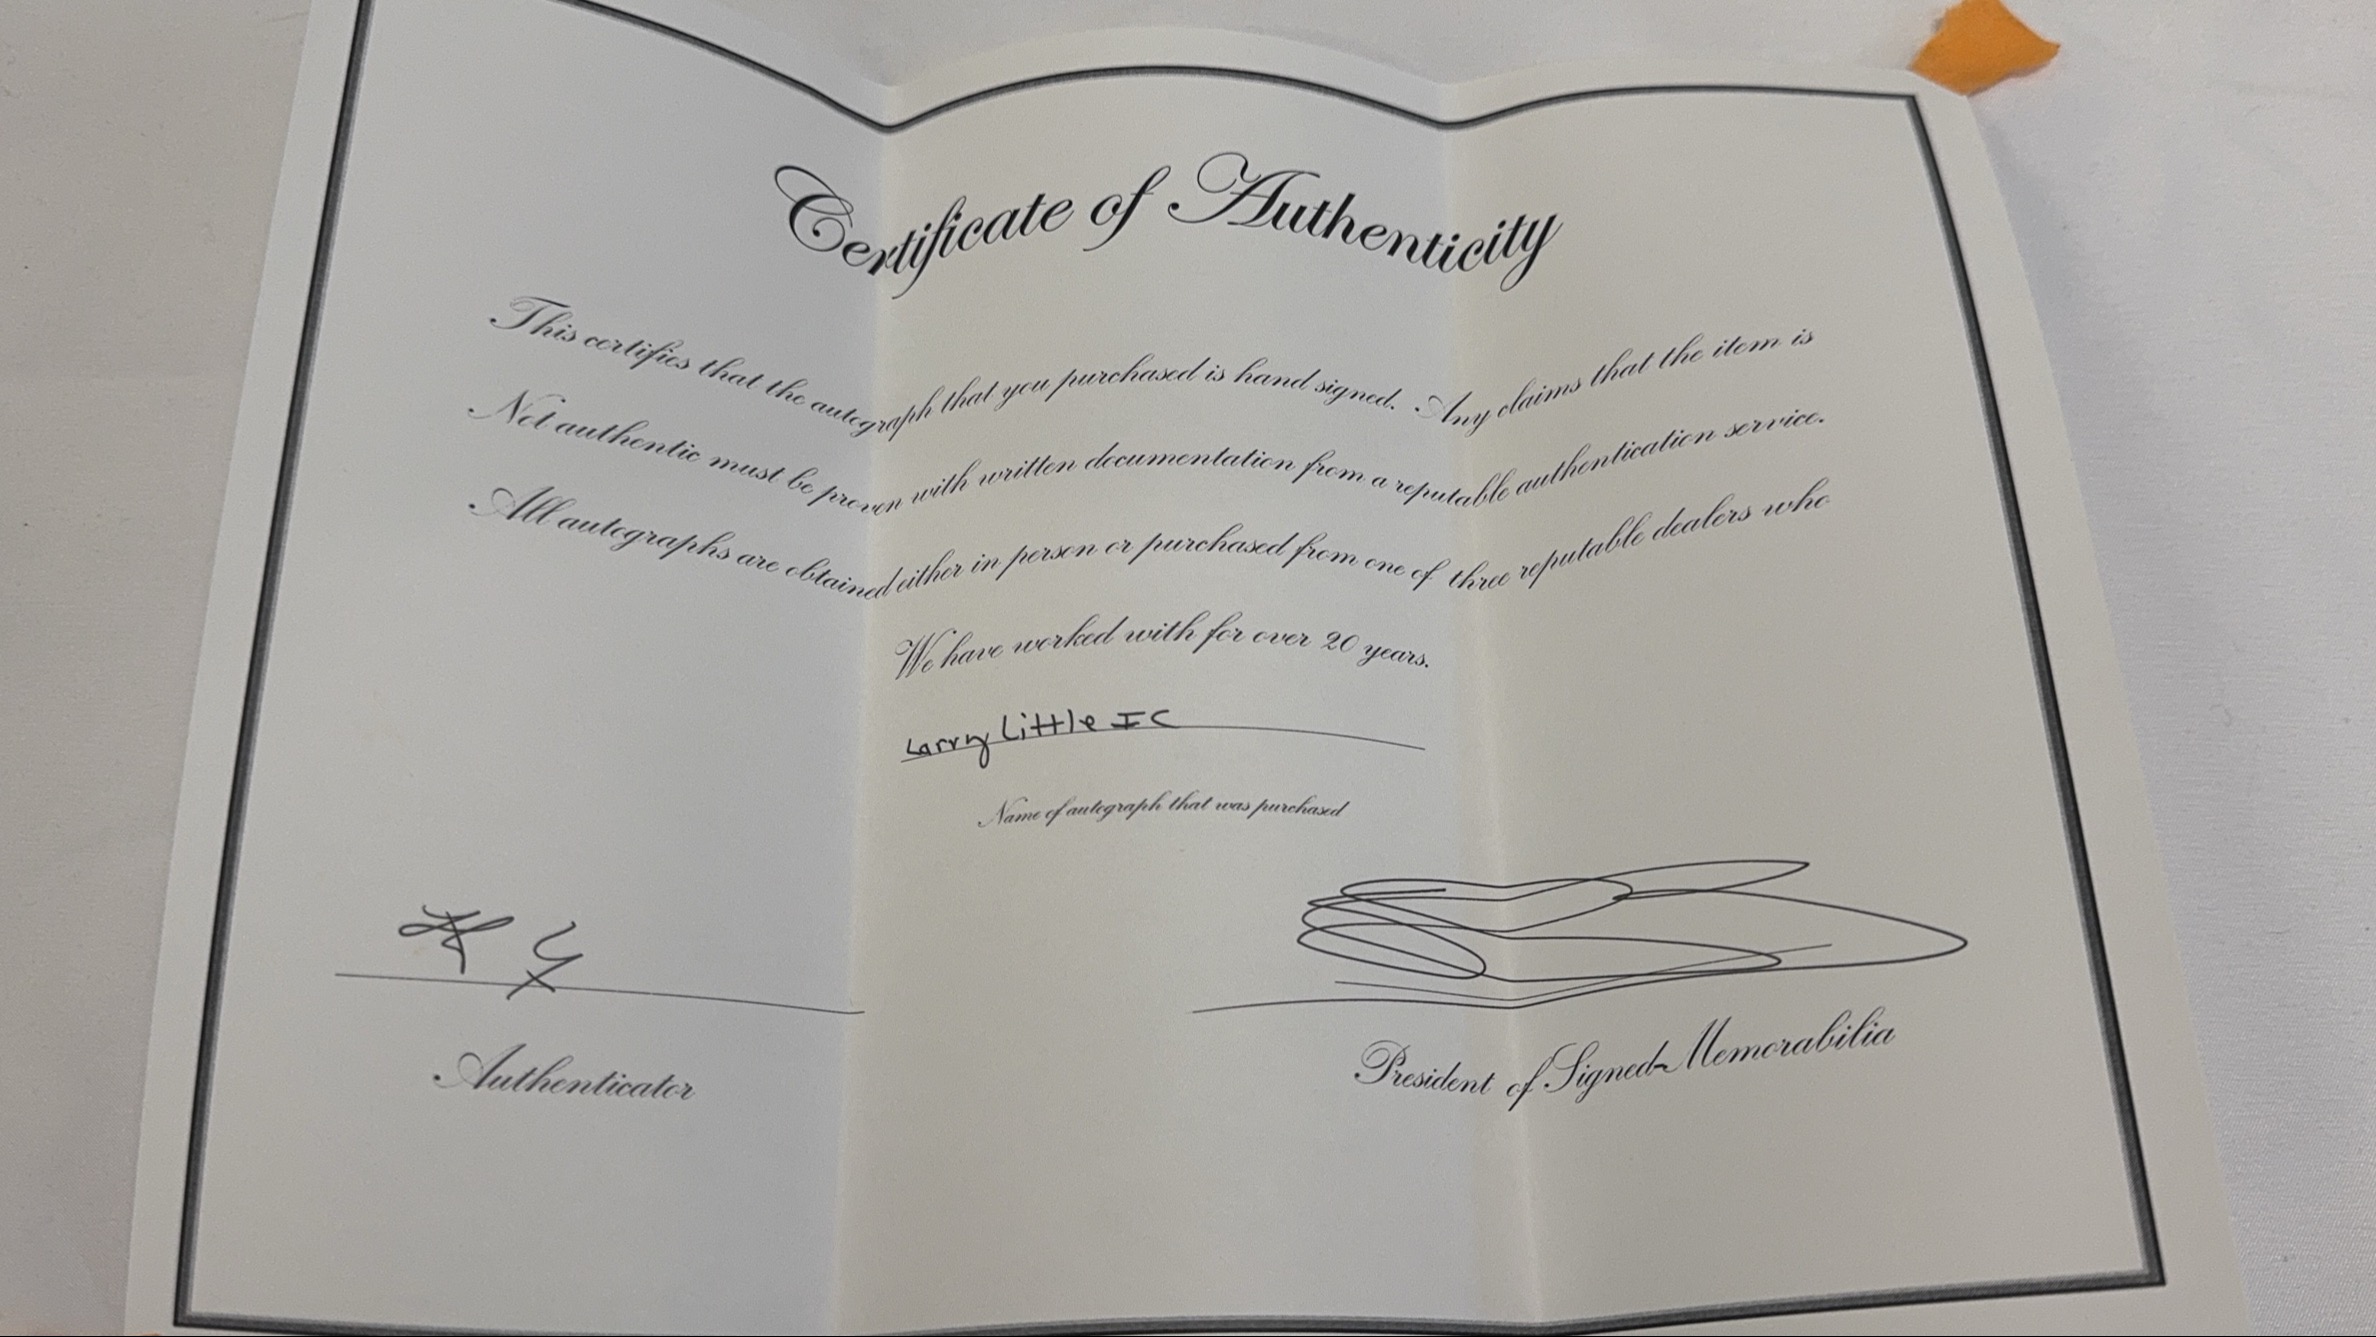 Certificate of Authenticity
This certifies that the autograph that you purchased is hand signed. Any claims that the item is
Not authentic must be proven with written documentation from a reputable authentication service.
All autographs are obtained either in person or purchased from one of three reputable dealers who
We have worked with for over 20 years.
Larry Little IC
Name of autograph that was purchased
Authenticator
President of Signed-Memorabilia